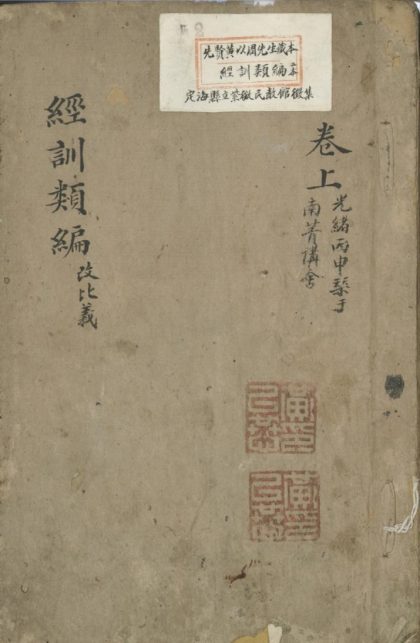 先賢黃以周先生藏本
經訓類編
定海縣立紫微民教館徵集
卷上
光緒丙申于
南菁講舍
經訓類編
改比義